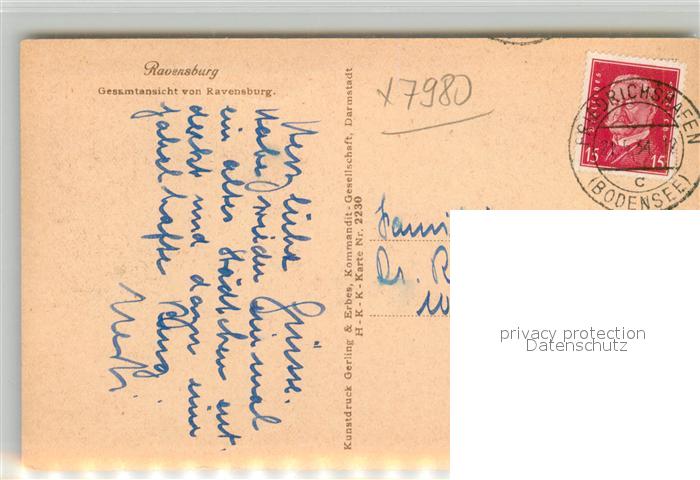 Ravensburg
Gesamtansicht von Ravensburg.
Herzliche Grüsse.
Habe wieder einmal
ein altes Städtchen ent-
deckt und dazu eine
fabelhafte
Kunstdruck Gerling & Erbes, Kommandit-Gesellschaft, Darmstadt
H-K-K-Karte Nr. 2230
x7980
15 15
FRIEDRICHSHAFEN
C
(BODENSEE)
Dr. R
privacy protection
Datenschutz